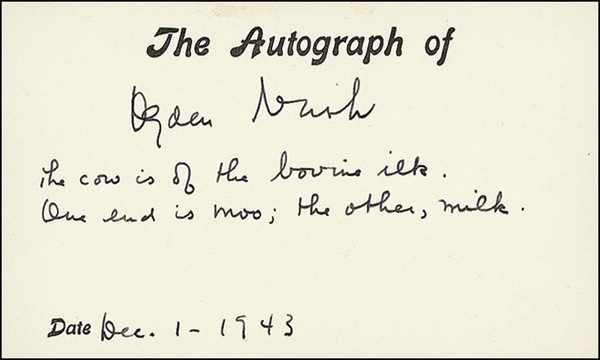 The Autograph of
Ogden Nash
The cow is of the bovine ilk.
One end is moo; the other, milk.
Date Dec. 1 - 1943